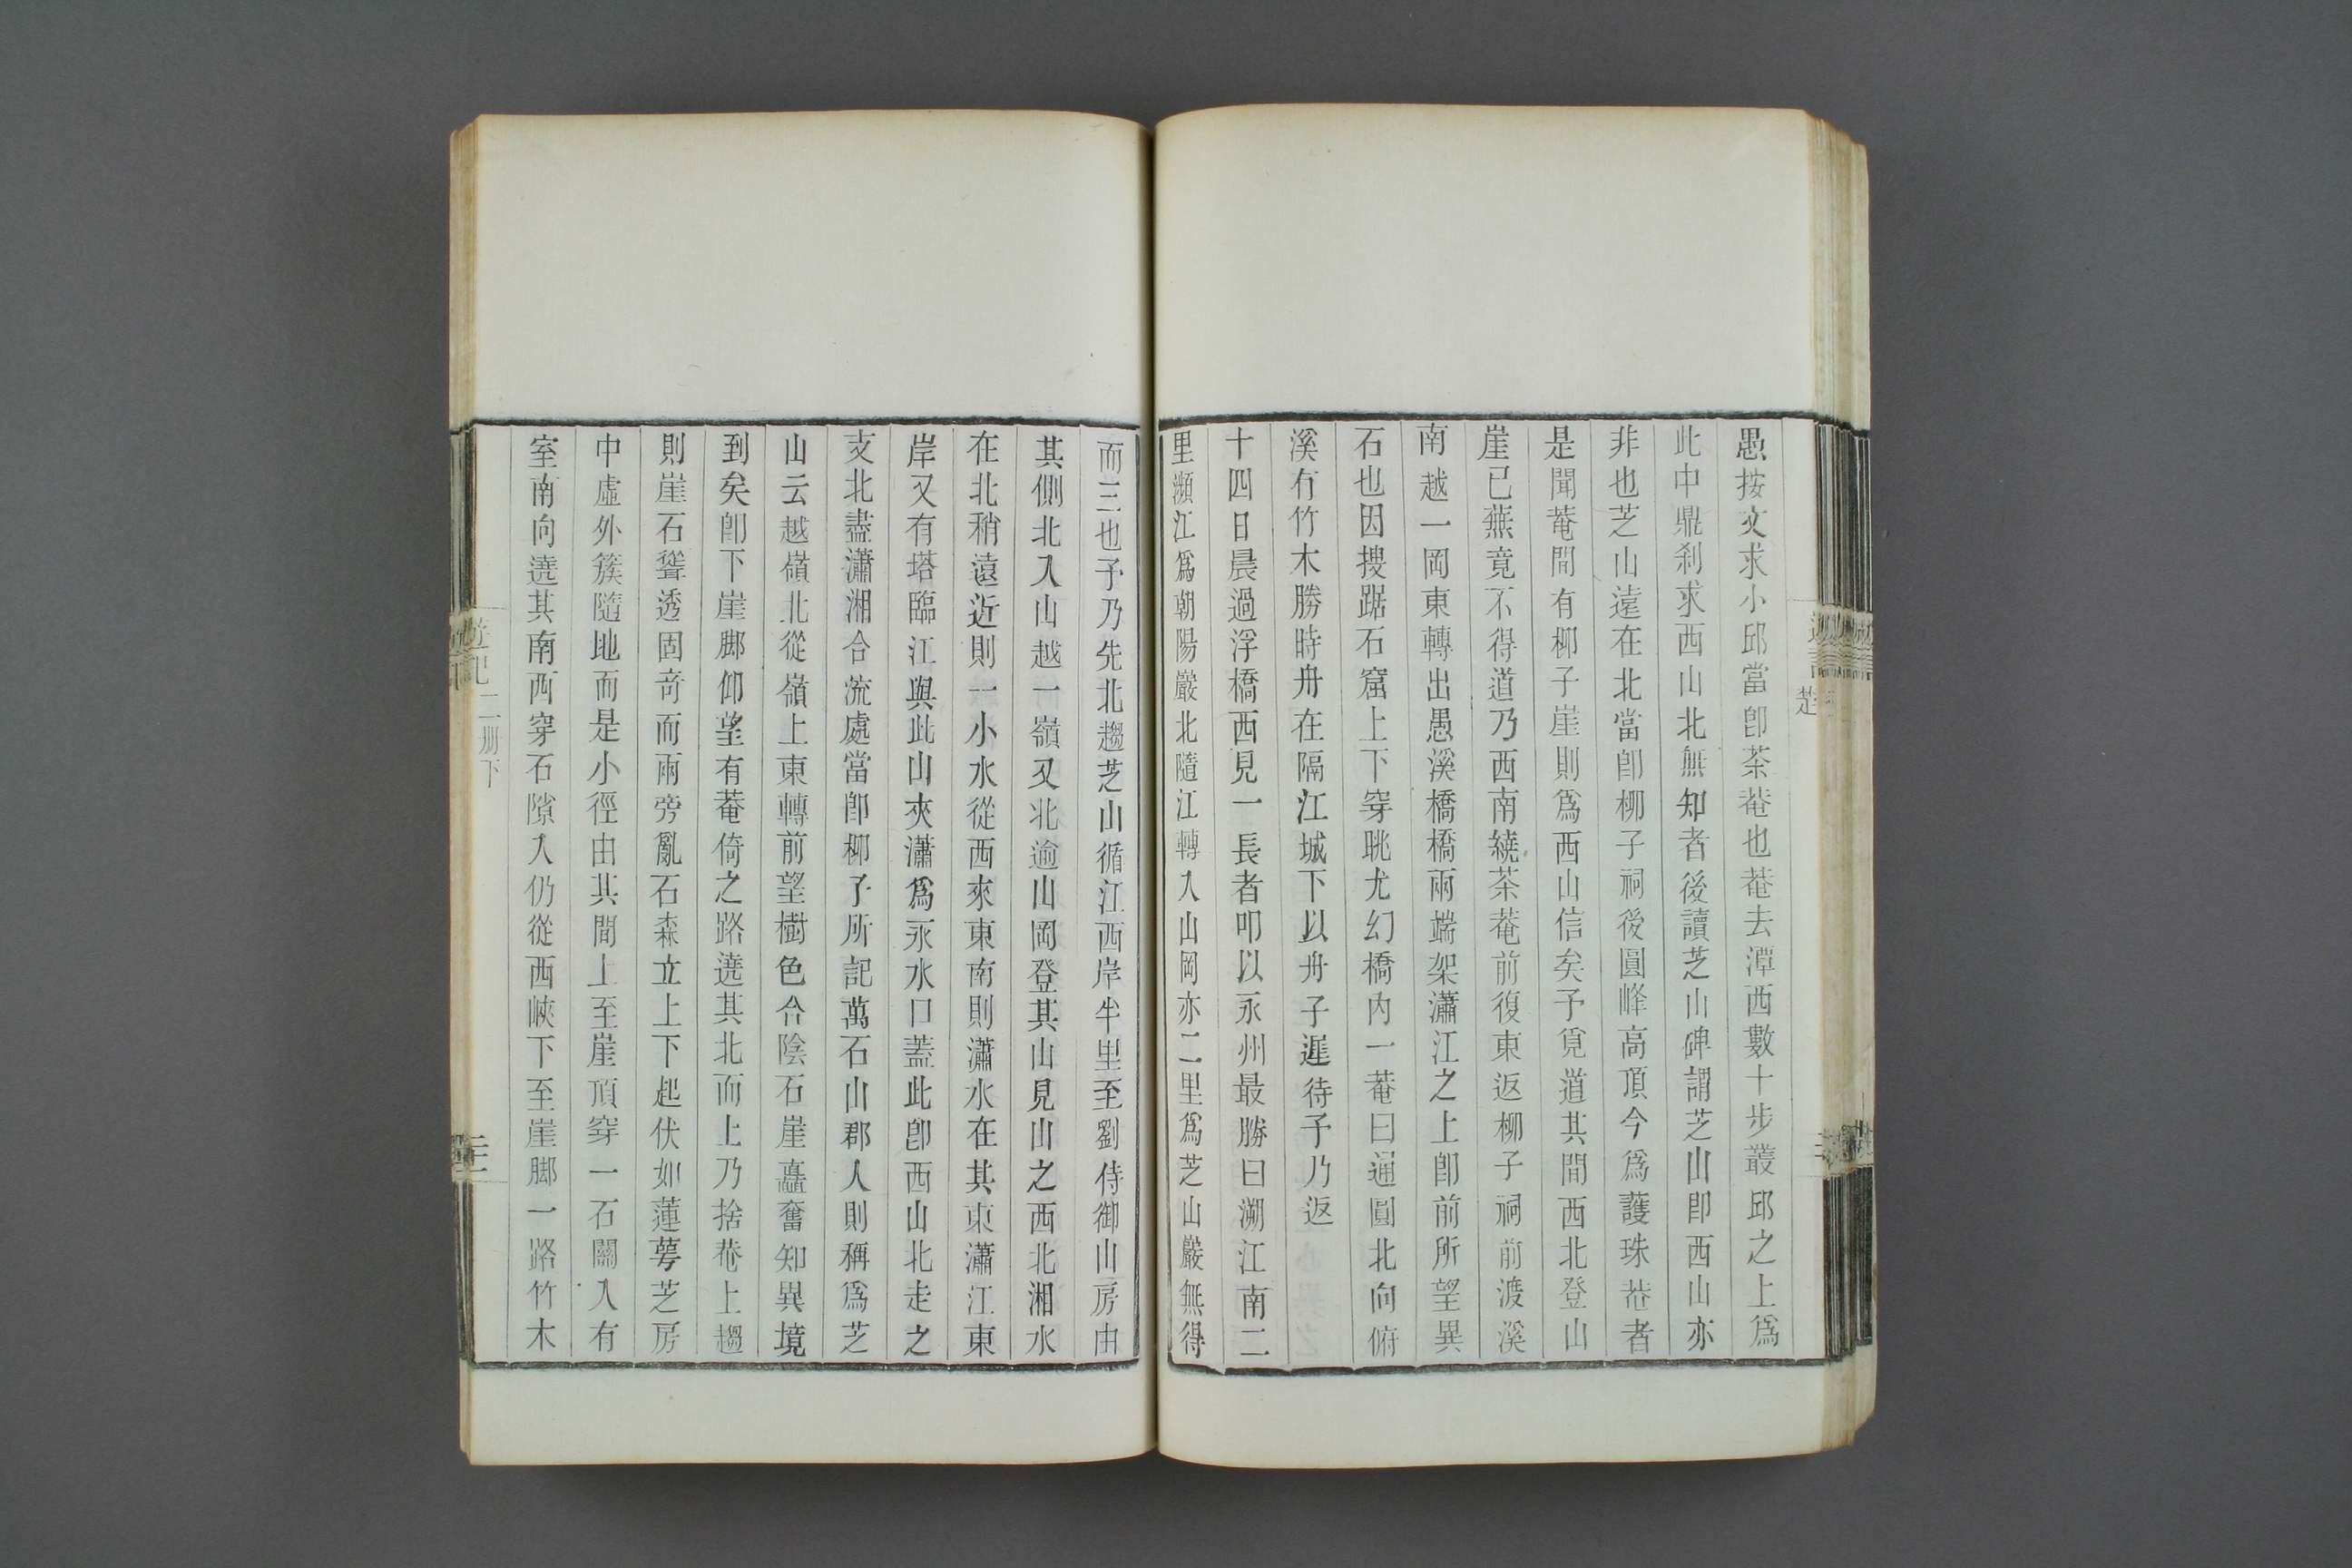 愚按文求小邱當卽茶菴也菴去潭西數十步叢邱之上爲
此中鼎刹求西山北無知者後讀芝山碑謂芝山卽西山亦
非也芝山遠在北當卽柳子祠後圓峰高頂今爲護珠菴者
是聞菴間有柳子崖則爲西山信矣予覓道其間西北登山
崖已蕪竟不得道乃西南繞茶菴前復東返柳子祠前渡溪
南越一岡東轉出愚溪橋橋兩端架瀟江之上卽前所望異
石也因搜踞石窟上下穿眺尤幻橋內一菴曰通圓北向俯
溪有竹木勝時舟在隔江城下以舟子遲待予乃返
十四日晨過浮橋西見一長者叩以永州最勝曰溯江南二
里瀕江爲朝陽巖北隨江轉入山岡亦二里爲芝山巖無得
而三也予乃先北趨芝山循江西岸半里至劉侍御山房由
其側北入山越一嶺又北逾山岡登其山見山之西北湘水
在北稍遠近則一小水從西來東南則瀟水在其東瀟江東
岸又有塔臨江與此山夾瀟爲永水口蓋此卽西山北走之
支北盡瀟湘合流處當卽柳子所記萬石山郡人則稱爲芝
山云越嶺北從嶺上東轉前望樹色合陰石崖矗奮知異境
到矣卽下崖脚仰望有菴倚之路遶其北而上乃捨菴上趨
則崖石聳透固奇而兩旁亂石森立上下起伏如蓮萼芝房
中虛外簇隨地而是小徑由其間上至崖頂穿一石關入有
室南向遶其南西穿石隙入仍從西峽下至崖脚一路竹木
遊記二册下